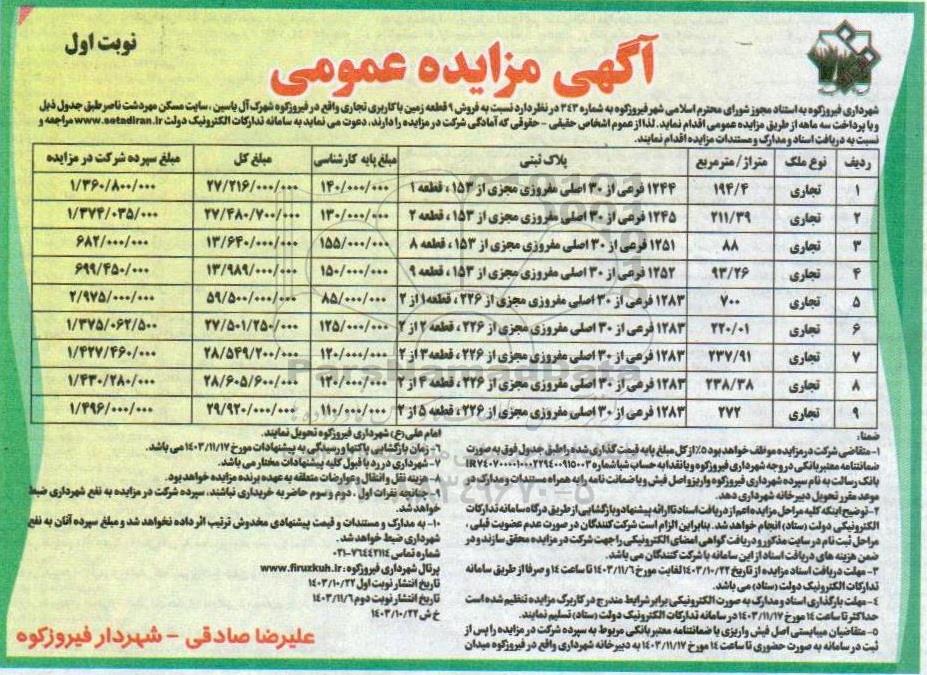 نوبت اول
آگهی مزایده عمومی
شهرداری فیروزکوه به استناد مجوز شورای محترم اسلامی شهر فیروزکوه به شماره ۳۴۳ در نظر دارد نسبت به فروش ۹ قطعه زمین با کاربری تجاری واقع در فیروزکوه شهرک آل یاسین ، سایت مسکن مهر دشت ناصر طبق جدول ذیل
و با پرداخت سه ماهه از طریق مزایده عمومی اقدام نماید. لذا از عموم اشخاص حقیقی - حقوقی که آمادگی شرکت در مزایده را دارند، دعوت می نماید به سامانه تدارکات الکترونیک دولت www.setadiran.ir مراجعه و
نسبت به دریافت اسناد و مدارک و مستندات مزایده اقدام نمایند.
ردیف نوع ملک متراژ/ مترمربع پلاک ثبتی مبلغ پایه کارشناسی مبلغ کل مبلغ سپرده شرکت در مزایده
۱ تجاری ۱۹۴/۴ ۱۲۴۴ فرعی از ۳۰ اصلی مفروزی مجزی از ۱۵۳ ، قطعه ۱ ۱۴۰/۰۰۰/۰۰۰ ۲۷/۲۱۶/۰۰۰/۰۰۰ ۱/۳۶۰/۸۰۰/۰۰۰
۲ تجاری ۲۱۱/۳۹ ۱۲۴۵ فرعی از ۳۰ اصلی مفروزی مجزی از ۱۵۳ ، قطعه ۲ ۱۳۰/۰۰۰/۰۰۰ ۲۷/۴۸۰/۷۰۰/۰۰۰ ۱/۳۷۴/۰۳۵/۰۰۰
۳ تجاری ۸۸ ۱۲۵۱ فرعی از ۳۰ اصلی مفروزی مجزی از ۱۵۳ ، قطعه ۸ ۱۵۵/۰۰۰/۰۰۰ ۱۳/۶۴۰/۰۰۰/۰۰۰ ۶۸۲/۰۰۰/۰۰۰
۴ تجاری ۹۳/۲۶ ۱۲۵۲ فرعی از ۳۰ اصلی مفروزی مجزی از ۱۵۳ ، قطعه ۹ ۱۵۰/۰۰۰/۰۰۰ ۱۳/۹۸۹/۰۰۰/۰۰۰ ۶۹۹/۴۵۰/۰۰۰
۵ تجاری ۷۰۰ ۱۲۸۳ فرعی از ۳۰ اصلی مفروزی مجزی از ۲۲۶ ، قطعه ۱ از ۲ ۸۵/۰۰۰/۰۰۰ ۵۹/۵۰۰/۰۰۰/۰۰۰ ۲/۹۷۵/۰۰۰/۰۰۰
۶ تجاری ۲۲۰/۰۱ ۱۲۸۳ فرعی از ۳۰ اصلی مفروزی مجزی از ۲۲۶ ، قطعه ۲ از ۲ ۱۲۵/۰۰۰/۰۰۰ ۲۷/۵۰۱/۲۵۰/۰۰۰ ۱/۳۷۵/۰۶۲/۵۰۰
۷ تجاری ۲۳۷/۹۱ ۱۲۸۳ فرعی از ۳۰ اصلی مفروزی مجزی از ۲۲۶ ، قطعه ۳ از ۲ ۱۲۰/۰۰۰/۰۰۰ ۲۸/۵۴۹/۲۰۰/۰۰۰ ۱/۴۲۷/۴۶۰/۰۰۰
۸ تجاری ۲۳۸/۳۸ ۱۲۸۳ فرعی از ۳۰ اصلی مفروزی مجزی از ۲۲۶ ، قطعه ۴ از ۲ ۱۲۰/۰۰۰/۰۰۰ ۲۸/۶۰۵/۶۰۰/۰۰۰ ۱/۴۳۰/۲۸۰/۰۰۰
۹ تجاری ۲۷۲ ۱۲۸۳ فرعی از ۳۰ اصلی مفروزی مجزی از ۲۲۶ ، قطعه ۵ از ۲ ۱۱۰/۰۰۰/۰۰۰ ۲۹/۹۲۰/۰۰۰/۰۰۰ ۱/۴۹۶/۰۰۰/۰۰۰
ضمنا:
۱- متقاضی شرکت در مزایده موظف خواهد بود ۵٪ از کل مبلغ پایه قیمت گذاری شده را طبق جدول فوق به صورت
ضمانتنامه معتبر بانکی در وجه شهرداری فیروزکوه و یا نقدا به حساب شبا شماره
بانک رسالت به نام سپرده شهرداری فیروزکوه واریز و اصل فیش و یا ضمانت نامه را به همراه مستندات و مدارک در
موعد مقرر تحویل دبیرخانه شهرداری دهد.
۲- توضیح اینکه کلیه مراحل مزایده اعم از دریافت اسناد تا ارائه پیشنهاد و بازگشایی از طریق درگاه سامانه تدارکات
الکترونیکی دولت (ستاد) انجام خواهد شد. بنابراین الزام است شرکت کنندگان در صورت عدم عضویت قبلی ،
مراحل ثبت نام در سایت مذکور و دریافت گواهی امضای الکترونیکی را جهت شرکت در مزایده محقق سازند و در
ضمن هزینه های دریافت اسناد از این سامانه با شرکت کنندگان می باشد.
۳- مهلت دریافت اسناد مزایده از تاریخ ۱۴۰۳/۱۰/۲۲ لغایت مورخ ۱۴۰۳/۱۱/۶ تا ساعت ۱۴ و صرفا از طریق سامانه
تدارکات الکترونیک دولت (ستاد) می باشد.
۴- مهلت بارگذاری اسناد و مدارک به صورت الکترونیکی برابر شرایط مندرج در کاربرگ مزایده تنظیم شده است
حداکثر تا ساعت ۱۴ مورخ ۱۴۰۳/۱۱/۱۷ در سامانه تدارکات الکترونیک دولت (ستاد) تسلیم نمایند.
۵- متقاضیان میبایستی اصل فیش واریزی یا ضمانتنامه معتبر بانکی مربوط به سپرده شرکت در مزایده را پس از
ثبت در سامانه به صورت حضوری تا ساعت ۱۴ مورخ ۱۴۰۳/۱۱/۱۷ به دبیرخانه شهرداری واقع در فیروزکوه میدان
امام علی(ع) شهرداری فیروزکوه تحویل نمایند.
۶- زمان بازگشایی پاکتها و رسیدگی به پیشنهادات مورخ ۱۴۰۳/۱۱/۱۷ می باشد.
۷- شهرداری در رد یا قبول کلیه پیشنهادات مختار می باشد.
۸- هزینه نقل و انتقال و عوارضات متعلقه به عهده برنده مزایده خواهد بود.
۹- چنانچه نفرات اول ، دوم و سوم حاضر به خریداری نباشند، سپرده شرکت در مزایده به نفع شهرداری ضبط
خواهد شد.
۱۰- به مدارک و مستندات و قیمت پیشنهادی مخدوش ترتیب اثر داده نخواهد شد و مبلغ سپرده آنان به نفع
شهرداری ضبط خواهد شد.
شماره تماس ۷۶۴۴۲۱۱۴-۰۲۱
پرتال شهرداری فیروزکوه: www.firuzkuh.ir
تاریخ انتشار نوبت اول ۱۴۰۳/۱۰/۲۲
تاریخ انتشار نوبت دوم ۱۴۰۳/۱۱/۶
خ ش ۱۴۰۳/۱۰/۲۲
علیرضا صادقی - شهردار فیروزکوه
ParsNamadData